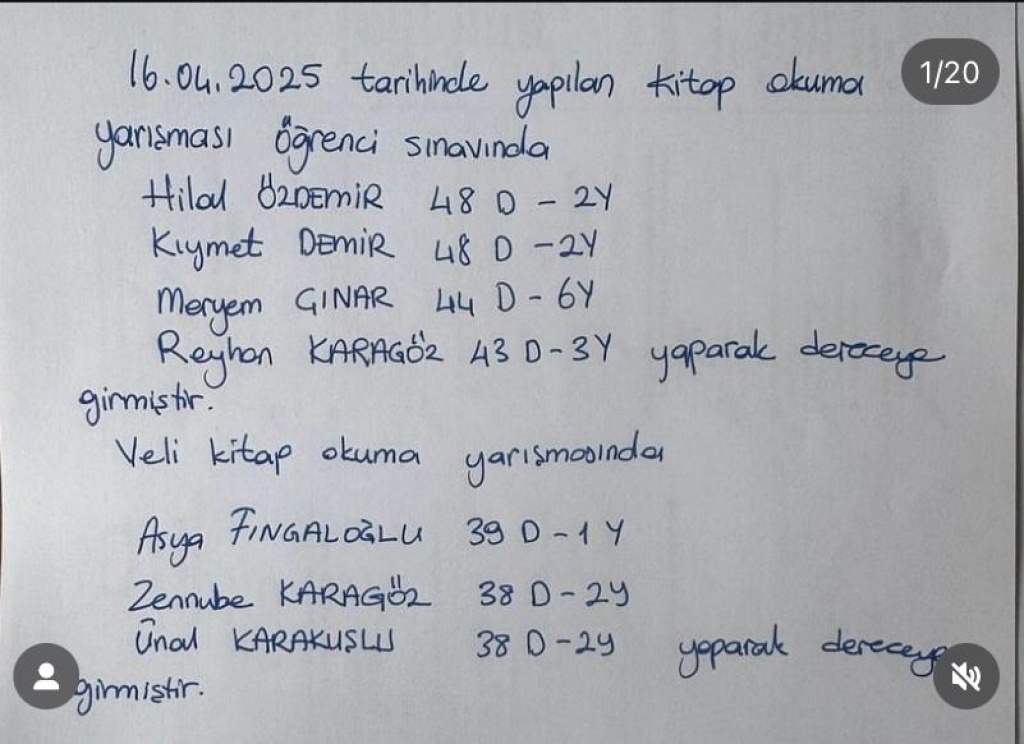 16.04.2025 tarihinde yapılan kitap okuma
1/20
yarışması öğrenci sınavında
Hilal ÖZDEMİR 48 D - 2Y
Kıymet DEMİR 48 D - 2Y
Meryem GINAR 44 D - 6Y
Reyhan KARAGÖZ 43 D - 3Y yaparak dereceye
girmiştir.
Veli kitap okuma yarışmasında
Asya FINGALOĞLU 39 D - 1 Y
Zennube KARAGÖZ 38 D - 2Y
Ünal KARAKUŞLU 38 D - 2Y yaparak dereceye
girmiştir.